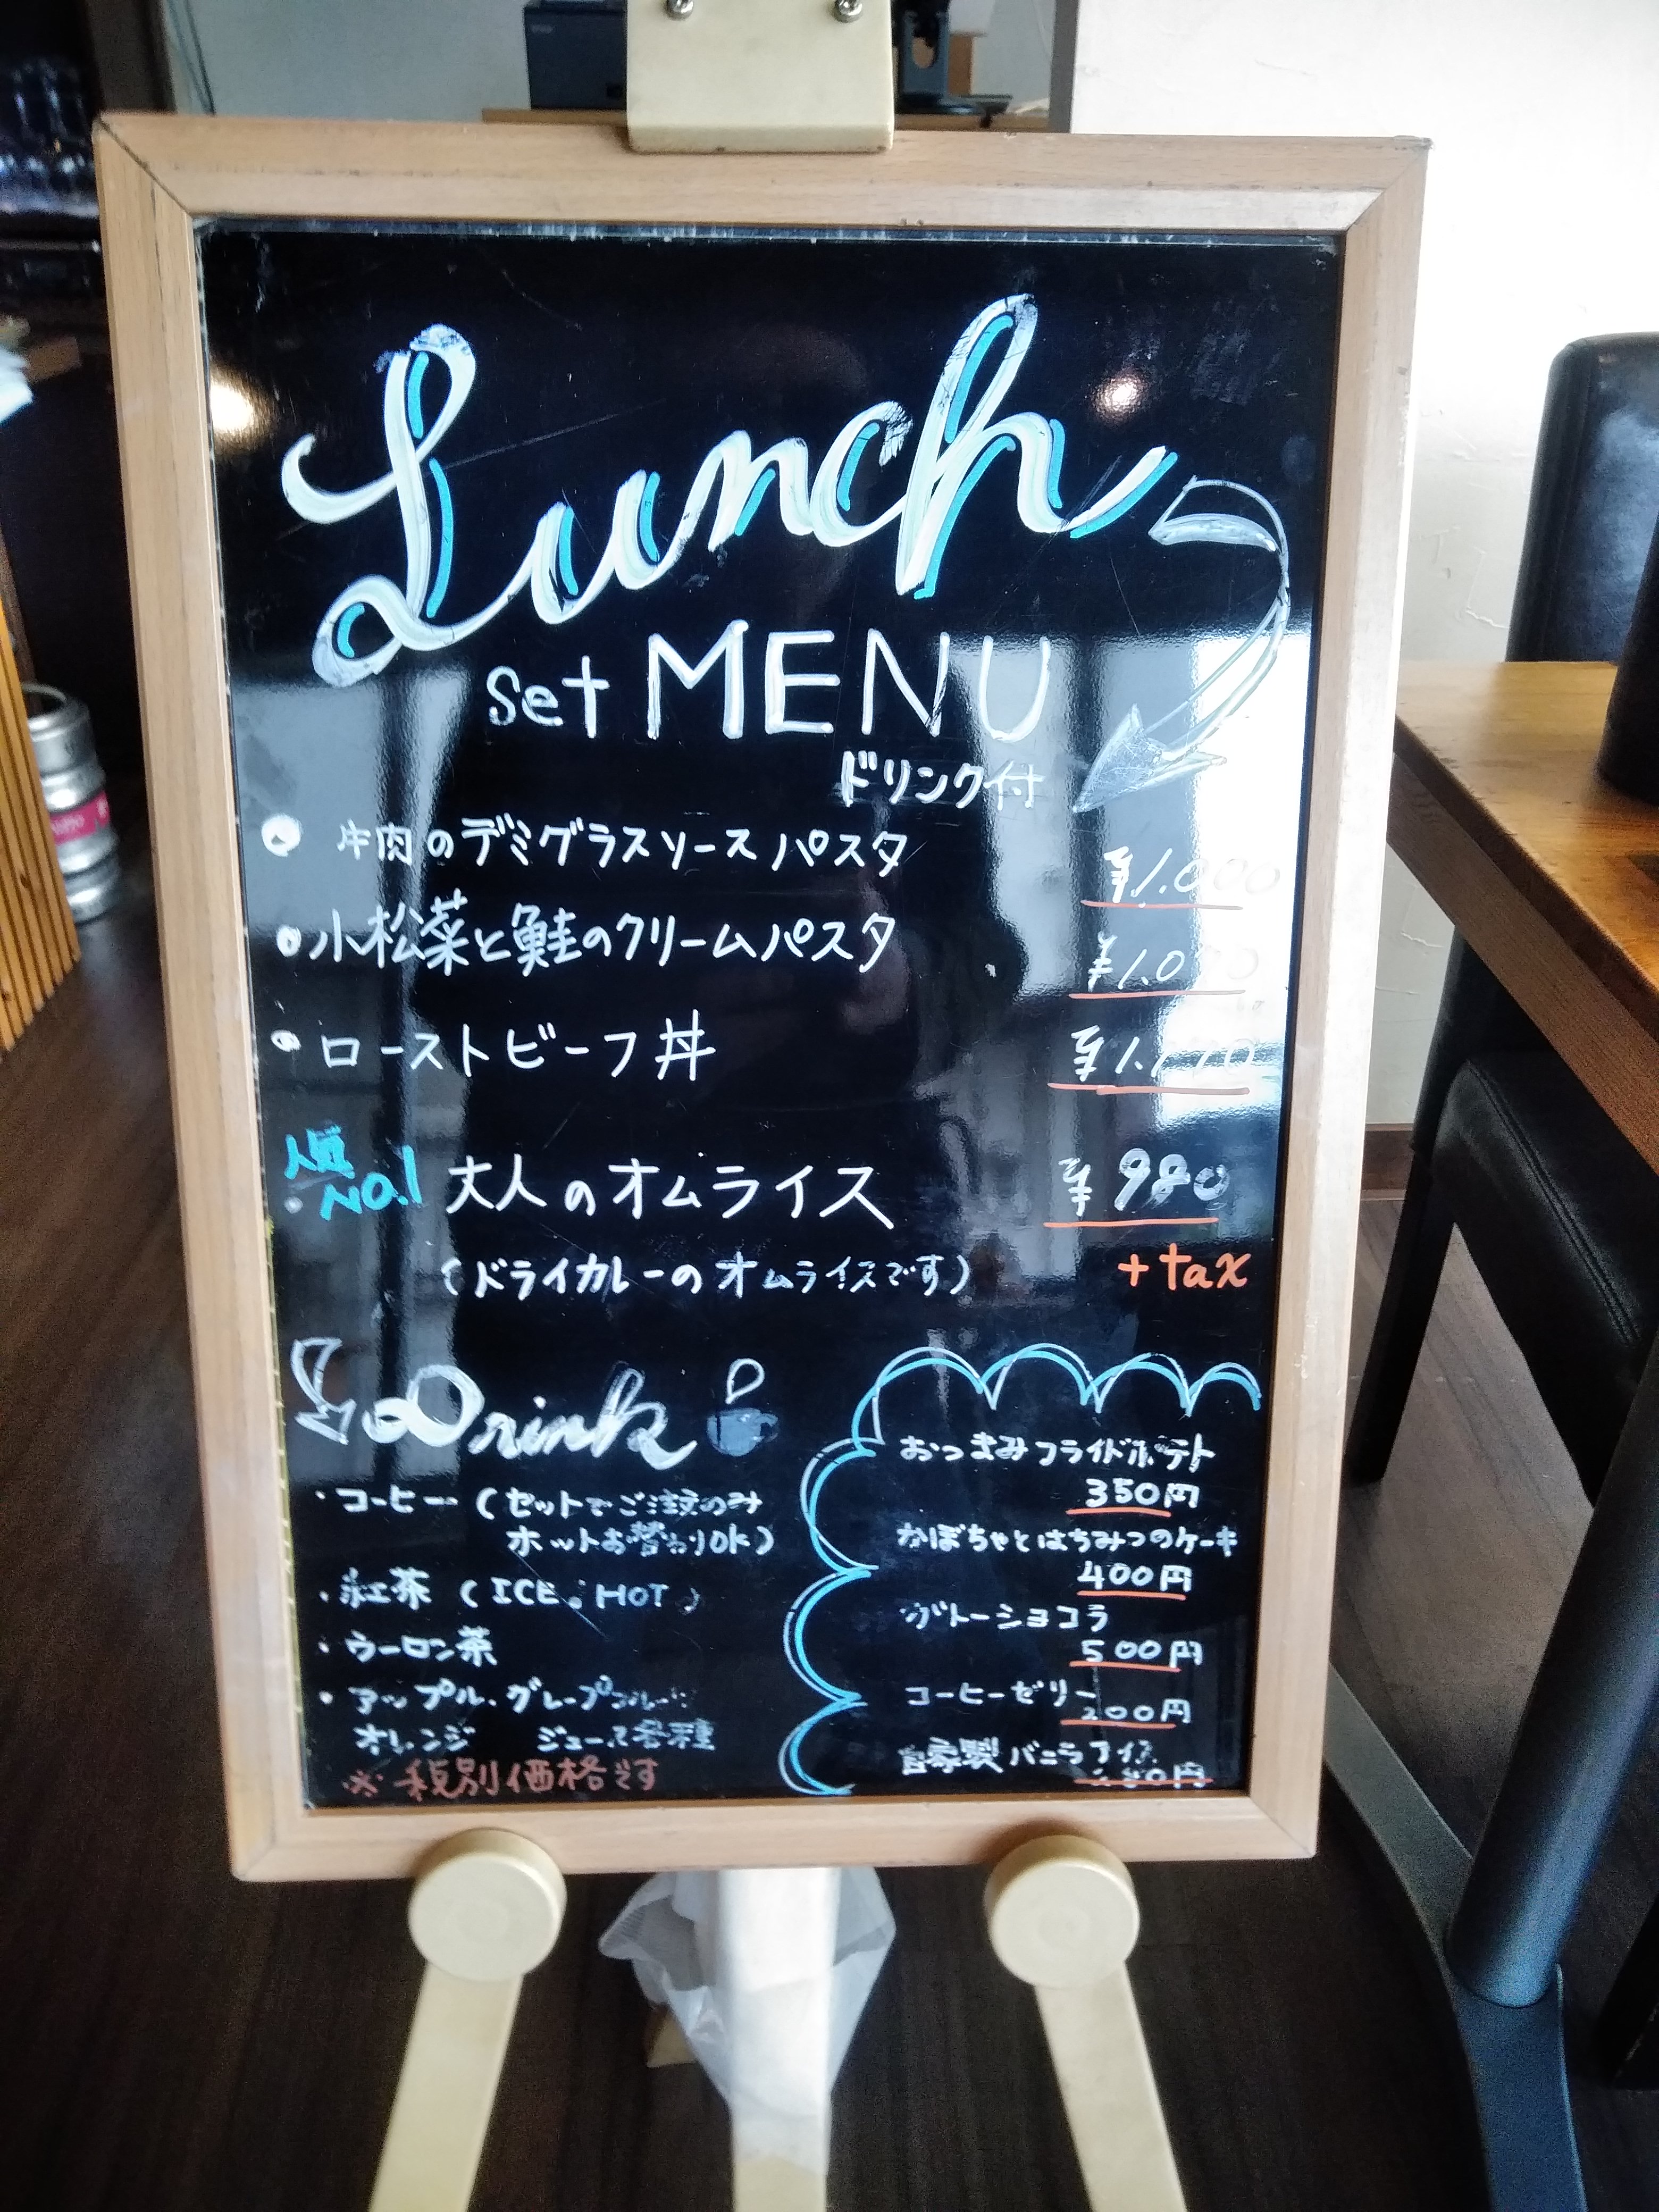 Lunch
set MENU
ドリンク付
牛肉のデミグラスソースパスタ ¥1.000
小松菜と鮭のクリームパスタ
ローストビーフ丼
人気No.1 大人のオムライス ¥980
(ドライカレーのオムライスです) +tax
Drink
・コーヒー (セットでご注文のみ
ホットお替わりOK)
・紅茶 (ICE・HOT)
・ウーロン茶
・アップル・グレープフルーツ
オレンジ ジュース各種
※税別価格です
おつまみフライドポテト
350円
かぼちゃとはちみつのケーキ
400円
ガトーショコラ
500円
コーヒーゼリー
200円
自家製バニラアイス